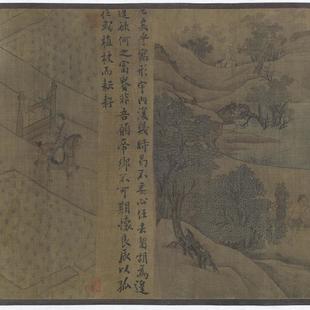 矣乎寓形宇內復幾時曷不委心任去留胡為遑
遑欲何之富貴非吾願帝鄉不可期懷良辰以孤
往或植杖而耘耔